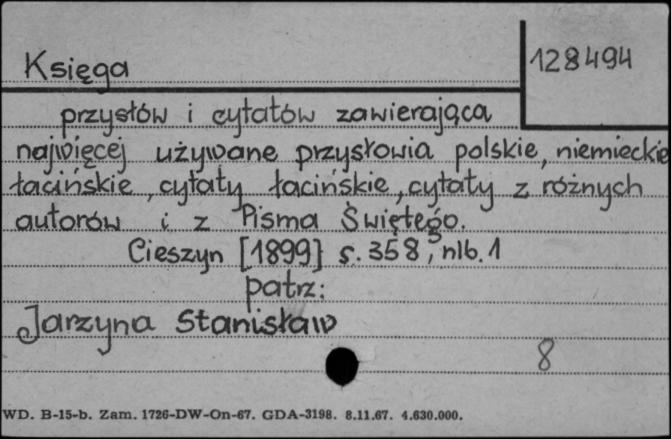 Księga
128494
przysłów i cytatów zawierająca
najwięcej używane przysłowia polskie, niemieckie
łacińskie, cytaty łacińskie, cytaty z różnych
autorów i z Pisma Świętego.
Cieszyn [1899] s. 358, nlb. 1
patrz:
Jarzyna Stanisław
8
WD. B-15-b. Zam. 1726-DW-On-67. GDA-3198. 8.11.67. 4.630.000.